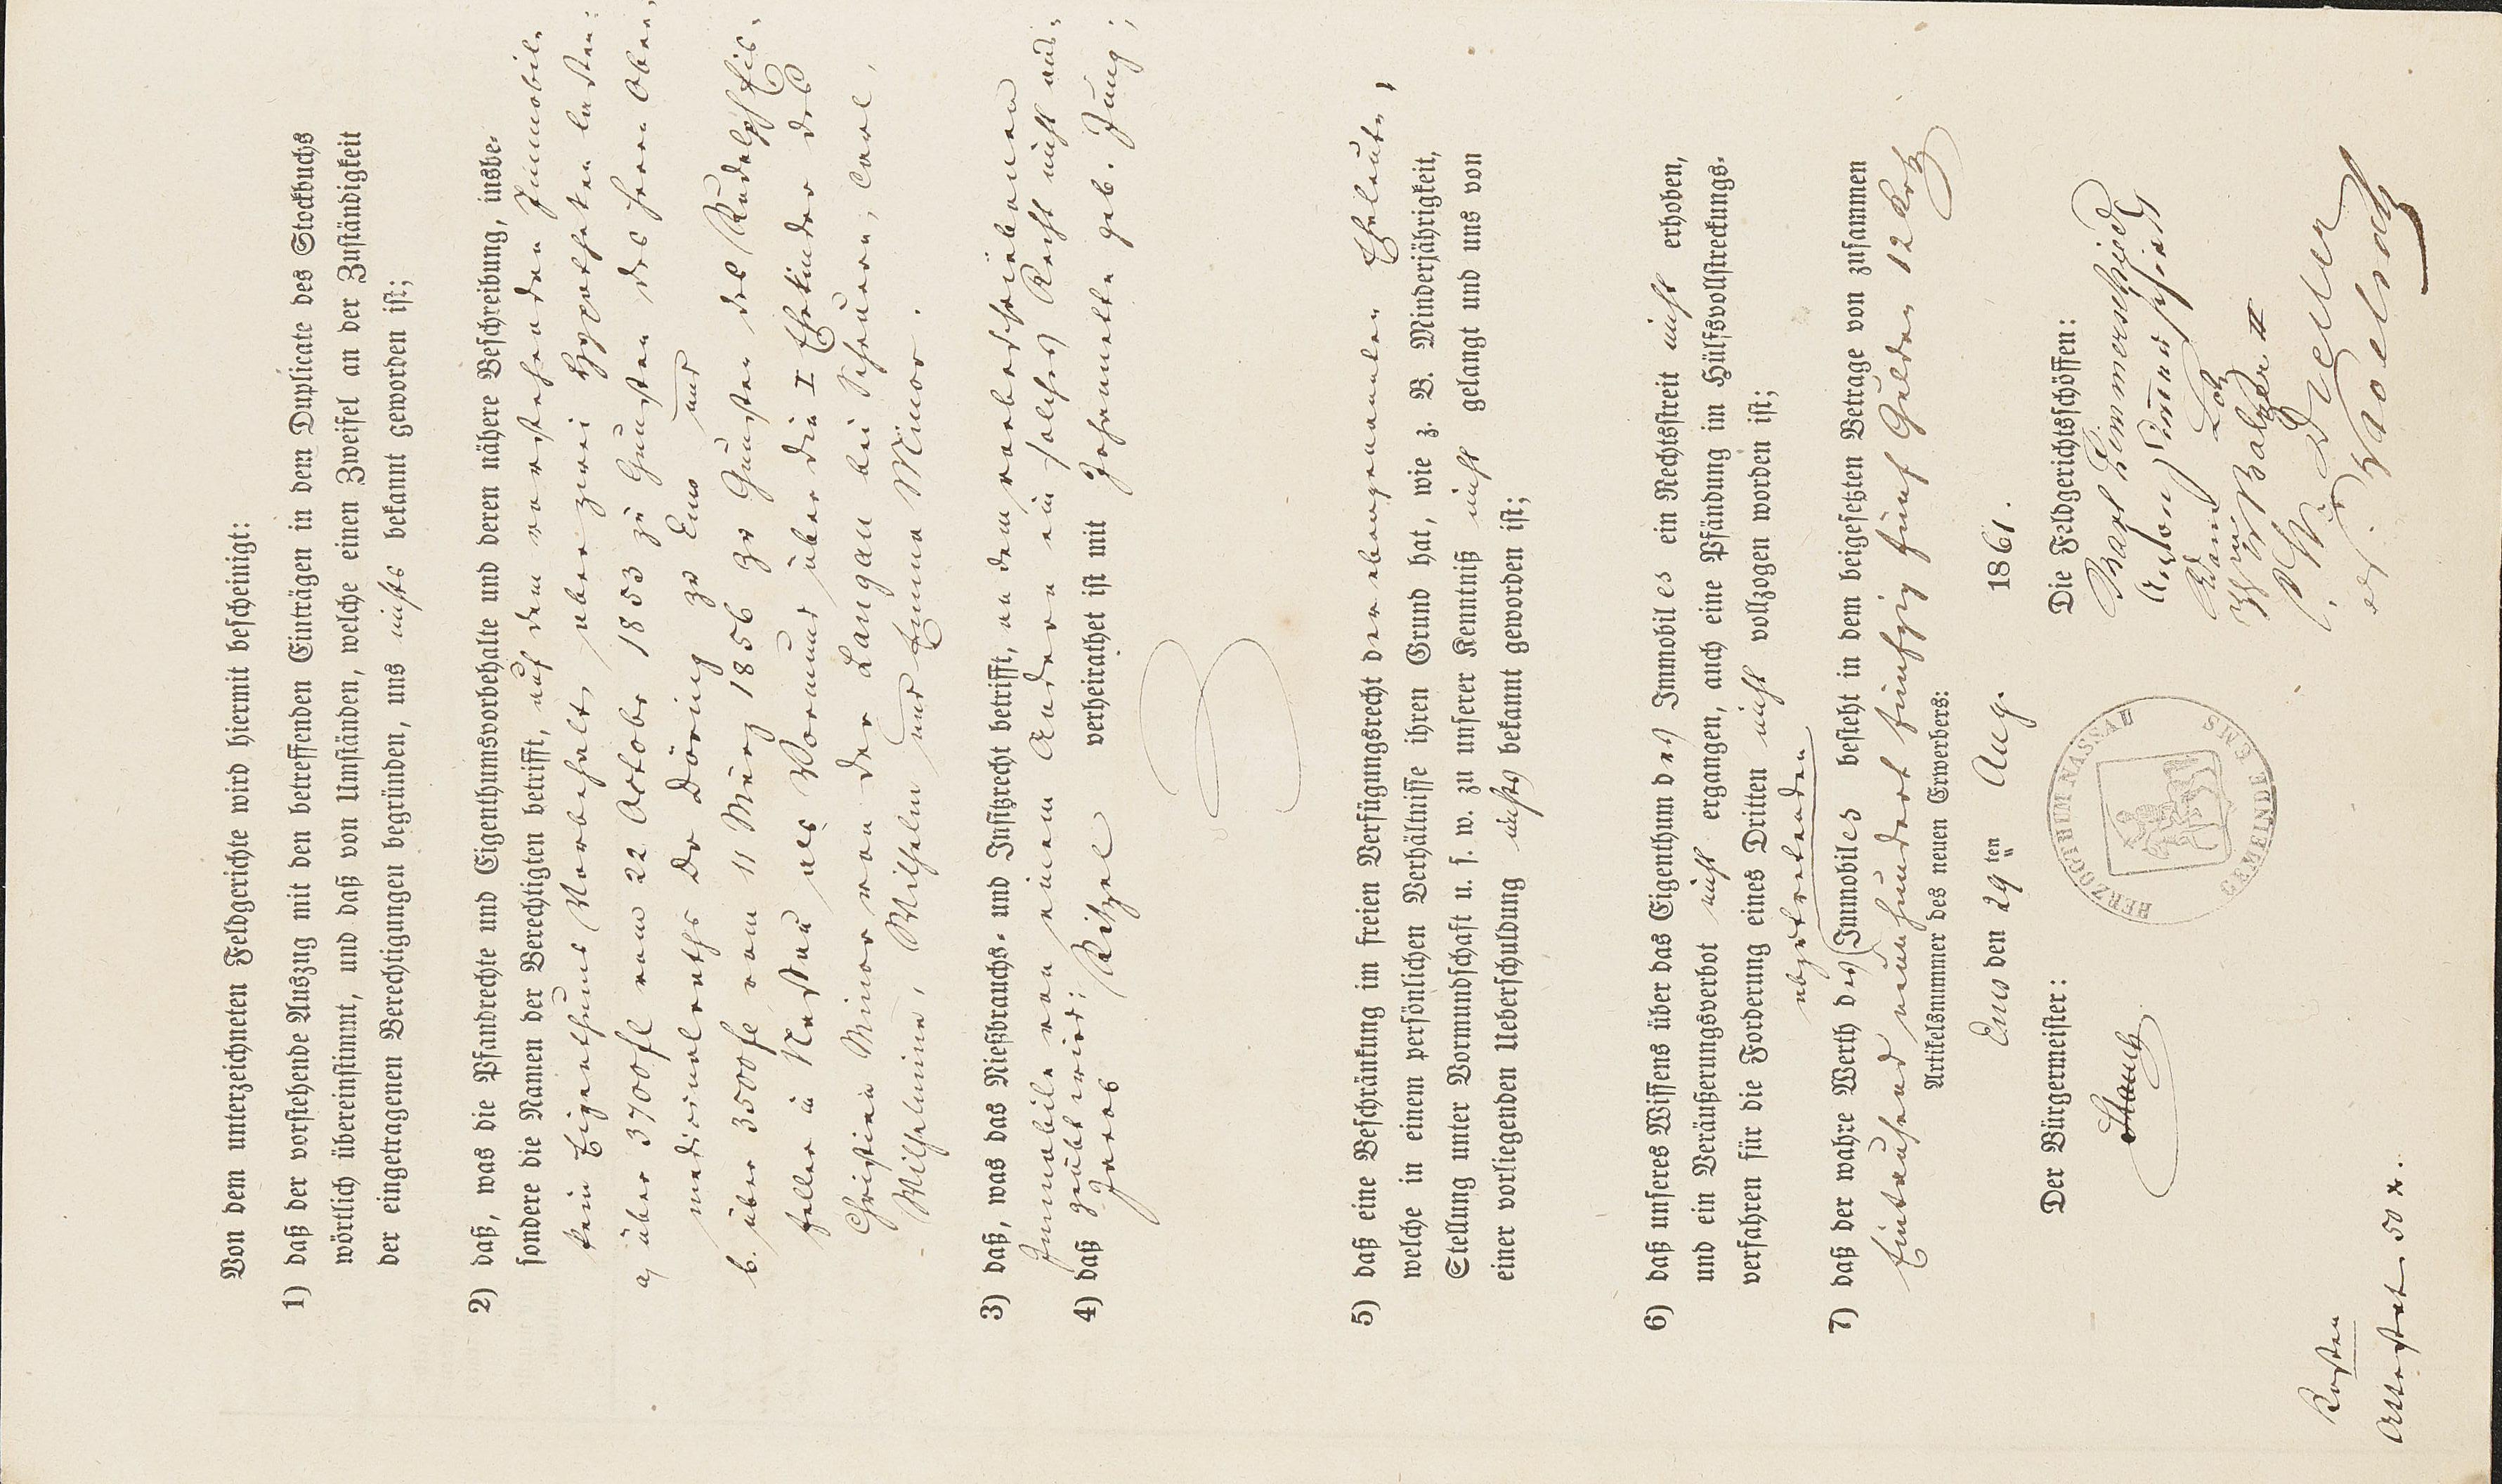 Von dem unterzeichneten Feldgerichte wird hiermit bescheinigt:
1) daß der vorstehende Auszug mit den betreffenden Einträgen in dem Duplicate des Stockbuchs
wörtlich übereinstimmt, und daß von Umständen, welche einen Zweifel an der Zuständigkeit
der eingetragenen Berechtigungen begründen, uns nichts bekannt geworden ist;
2) daß, was die Pfandrechte und Eigenthumsvorbehalte und deren nähere Beschreibung, insbe-
sondere die Namen der Berechtigten betrifft, auf dem vorstehenden Immobil-
kein Eigenthums Vorbehalt, aber zwei Hypotheken lasten:
a, über 3700 fl vom 22 October 1853 zu Gunsten des Herrn Ober-
medicinalraths Dr Döring zu Ems und
b. über 3500 fl vom 11 März 1856 zu Gunsten des Rudolph Eis-
feller in Nassau als Vormund über die I Ehekinder des
Christian Minor von der Langau bei Scheuern, Carl,
Wilhelmine, Wilhelm und Emma Minor.
3) daß, was das Nießbrauchs- und Insitzrecht betrifft, an dem vorbeschriebenen
Immobile von einem Andern ein solches Recht nicht aus-
geübt wird;
4) daß Jacob Kitzel verheirathet ist mit Johannette geb. Jung;
5) daß eine Beschränkung im freien Verfügungsrecht der ebengenannten Eheleute,
welche in einem persönlichen Verhältnisse ihren Grund hat, wie z. B. Minderjährigkeit,
Stellung unter Vormundschaft u. s. w. zu unserer Kenntniß nicht gelangt und uns von
einer vorliegenden Ueberschuldung nichts bekannt geworden ist;
6) daß unseres Wissens über das Eigenthum des Immobiles ein Rechtsstreit nicht erhoben,
und ein Veräußerungsverbot nicht ergangen, auch eine Pfändung im Hülfsvollstreckungs-
verfahren für die Forderung eines Dritten nicht vollzogen worden ist;
abzutretenden
7) daß der wahre Werth des Immobiles besteht in dem beigesetzten Betrage von zusammen
Eintausend neunhundert fünfzig fünf Gulden 12 Krz
Artikelsnummer des neuen Erwerbers:
Ems den 29ten Aug. 1861.
Der Bürgermeister:
Die Feldgerichtsschöffen:
HERZOGTHUM NASSAU
GEMEINDE EMS
Kosten
Attestat. 50 x.